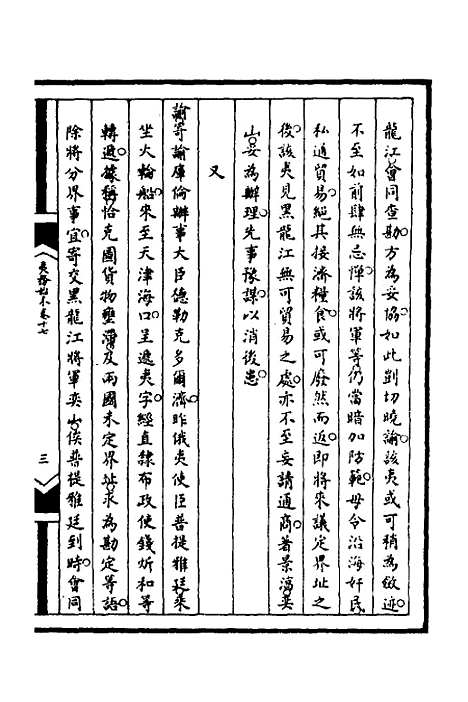 龍江會同查勘方為妥協如此剴切曉諭該夷或可稍為斂迹
不至如前肆無忌憚該將軍等仍當暗加防範毋令沿海奸民
私通貿易絕其接濟糧食或可廢然而返即將來議定界址之
後該夷見黑龍江無可貿易之處亦不至妄請通商著景淳奕
山妥為辦理先事豫謀以消後患
又
諭寄諭庫倫辦事大臣德勒克多爾濟昨俄夷使臣普提雅廷乘
坐火輪船來至天津海口呈遞夷字經直隸布政使錢炘和等
轉遞據稱恰克圖貨物壅滯及兩國未定界址求為勘定等語
除將分界事宜寄交黑龍江將軍奕山俟普提雅廷到時會同
夷務始末卷十七
三